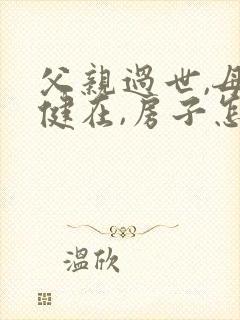 父親過世,母
健在,房子怎
溫欣